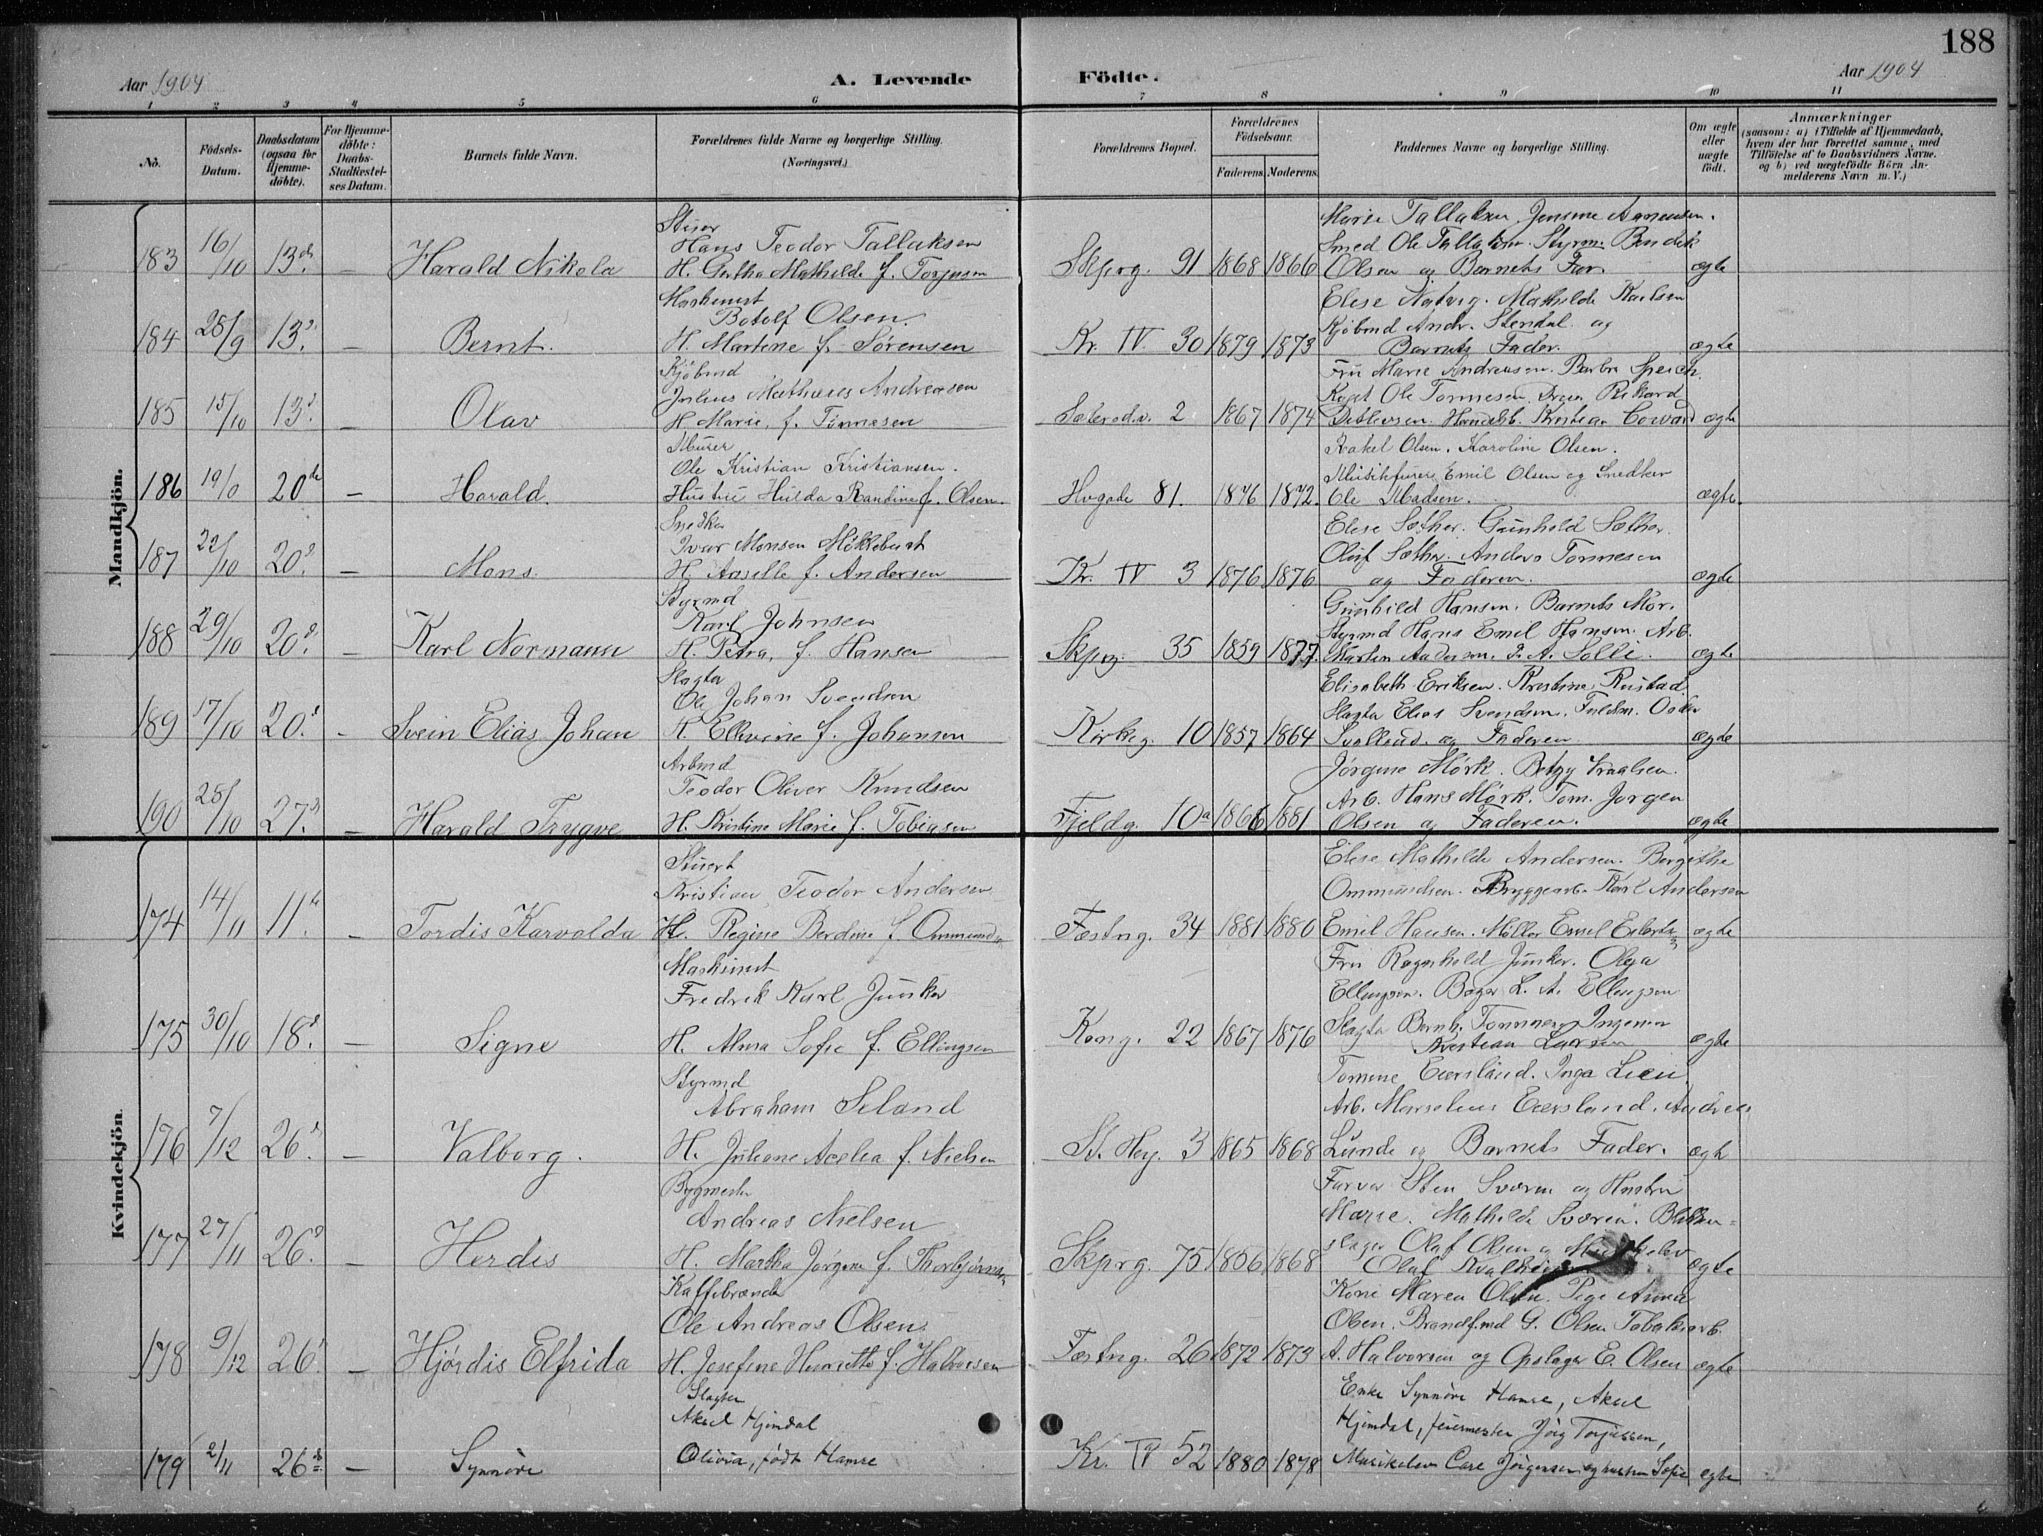 188
Aar 1904 A. Levende Födte. Aar 1904
1 2 3 4 5 6 7 8 9 10 11
No.
Födsels-Datum.
Daabsdatum (ogsaa for Hjemme-döbte).
For Hjemme-döbte: Daabs-Stadfæstel-ses Datum.
Barnets fulde Navn.
Forældrenes fulde Navne og borgerlige Stilling. (Næringsvei.)
Forældrenes Bopæl.
Forældrenes Födselsaar.
Faderens. Moderens.
Faddernes Navne og borgerlige Stilling.
Om ægte eller uægte födt.
Anmærkninger
(saasom: a) i Tilfælde af Hjemmedaab,
hvem der har forrettet samme, med
Tilföielse af to Daabsvidners Navne.
og b) ved uægtefödte Börn An-
melderens Navn m. V.)
Mandkjön.
183 16/10 13de — Harald Nikolai
Hans Teodor Tallaksen
H. Gertha Mathilde f. Torjusen
Skprg. 91 1868 1866
Marie Tallaksen Jensine
Smed Ole Tallaksen. Styrm. Bendik
Olsen og Barnets Far. ægte
184 28/9 13. — Bernt.
Maskinist
Botolf Olsen.
H. Martine f. Sørensen
Kr. IV 30 1879 1873
Elise Natvig. Mathilde Karlsen
Kjøbmd Andr. Stendal og
Barnets Fader. ægte
185 15/10 13. — Olav
Kjøbmd
Julius Mathæus Andreasen
H. Marie, f. Tønnesen
2 1867 1874
Fru Marie Andreasen. Barbra
Ole Tønnesen. Rikard
Detlevsen. Kristian ægte
186 19/ 20de — Harald.
Murer
Ole Kristian Kristiansen.
Hustru Hulda Randine f. Olsen.
Hvgade 81. 1876 1872.
Rakel Olsen. Karoline Olsen.
Emil Olsen og Snedker
Ole Madsen. ægte.
187 22/10 20. — Mons.
Snedker
Ivar Monsen Møklebust
H. f. Andersen
Kr. IV 3 1876 1876
Elise Sæther. Gunhild Sæther.
Oluf Sæther. Anders Tønnesen
og Faderen. ægte
188 29/10 20. — Karl Normann
Styrmd
Karl Johnsen
H. Petra, f. Hansen
Skprg. 35 1859 1877
Gunhild Hansen. Barnets Mor.
Styrmd Hans Emil Hansen. Arb.
Martin Andersen. P. A. Solli. ægte
189 17/10 20. — Svein Elias Johan
Slagter
Ole Johan Svendsen
H. Ellevine f. Johansen
Kirkeg. 10 1857 1864
Elisabeth Eriksen. Kristine Rustad
Slagter Elias Svendsen.
og Faderen ægte
190 28/10 27. — Harald Trygve
Arbmd
Teodor Oliver Knudsen
H. Kristine Marie f. Tobiasen
Fjeldg. 10a 1866 1881
Jørgine Mørk. Betzy
Arb. Hans Mørk. Tom. Jørgen
Olsen og Faderen. ægte
Kvindekjön.
174 14/11 11. — Tordis Karvalda
Stuert
Kristian Teodor Andersen
H. Regine Berdine f. Ommunds
Fæstng. 34 1881 1880
Elise Mathilde Andersen. Bergithe
Ommundsen. Bryggearb. Karl Andersen
Emil Hansen. Møller Emil ægte
175 30/10 18. — Signe
Maskinist
Fredrik Karl Junker
H. Alma Sofie f. Ellingsen
Kong. 22 1867 1876
Fru Ragnhild Junker. Olga
Ellingsen. Bager L. A. Ellingsen
Slagter Bernt Tønnesen Ingeniør
Kristian Larsen ægte
176 7/12 26. — Valborg.
Styrmd
Abraham Seland
H. Juliane f. Nielsen
St. Hey. 3 1865 1868
Tomine Eversland. Inga Lien
Arb. Marselius Eversland. Andreas
Lunde og Barnets Fader. ægte
177 27/11 26. Herdis
Bygmester
Andreas Nielsen
H. Martha Jørgine f. Thorbjørnsen
Skprg. 75 1856 1868
Farver Sten Sværen og Hustru
Marie. Mathilde Sværen. Blikken-
slager Olaf Olsen og
Olaf ægte
178 9/12 26. — Hjørdis Elfrida
Kaffebrænder
Ole Andreas Olsen
H. Josefine Henriette f. Halvorsen
Fæstng. 26 1872 1873
Kone Maren Olsen. Pige Anna
Olsen. Brandfmd G. Olsen Tobaksarb.
A. Halvorsen og Opslager E. Olsen ægte
179 2/11 26de — Synnøve
Slagter
Aksel Hjemdal
Olivia, født Hamre
Kr. IV 52 1880 1878
Enke Synnøve Hamre, Aksel
Hjemdal, feiermester Jørg Torjussen,
Musikelev Carl Jörgensen og hustru Sofie ægte